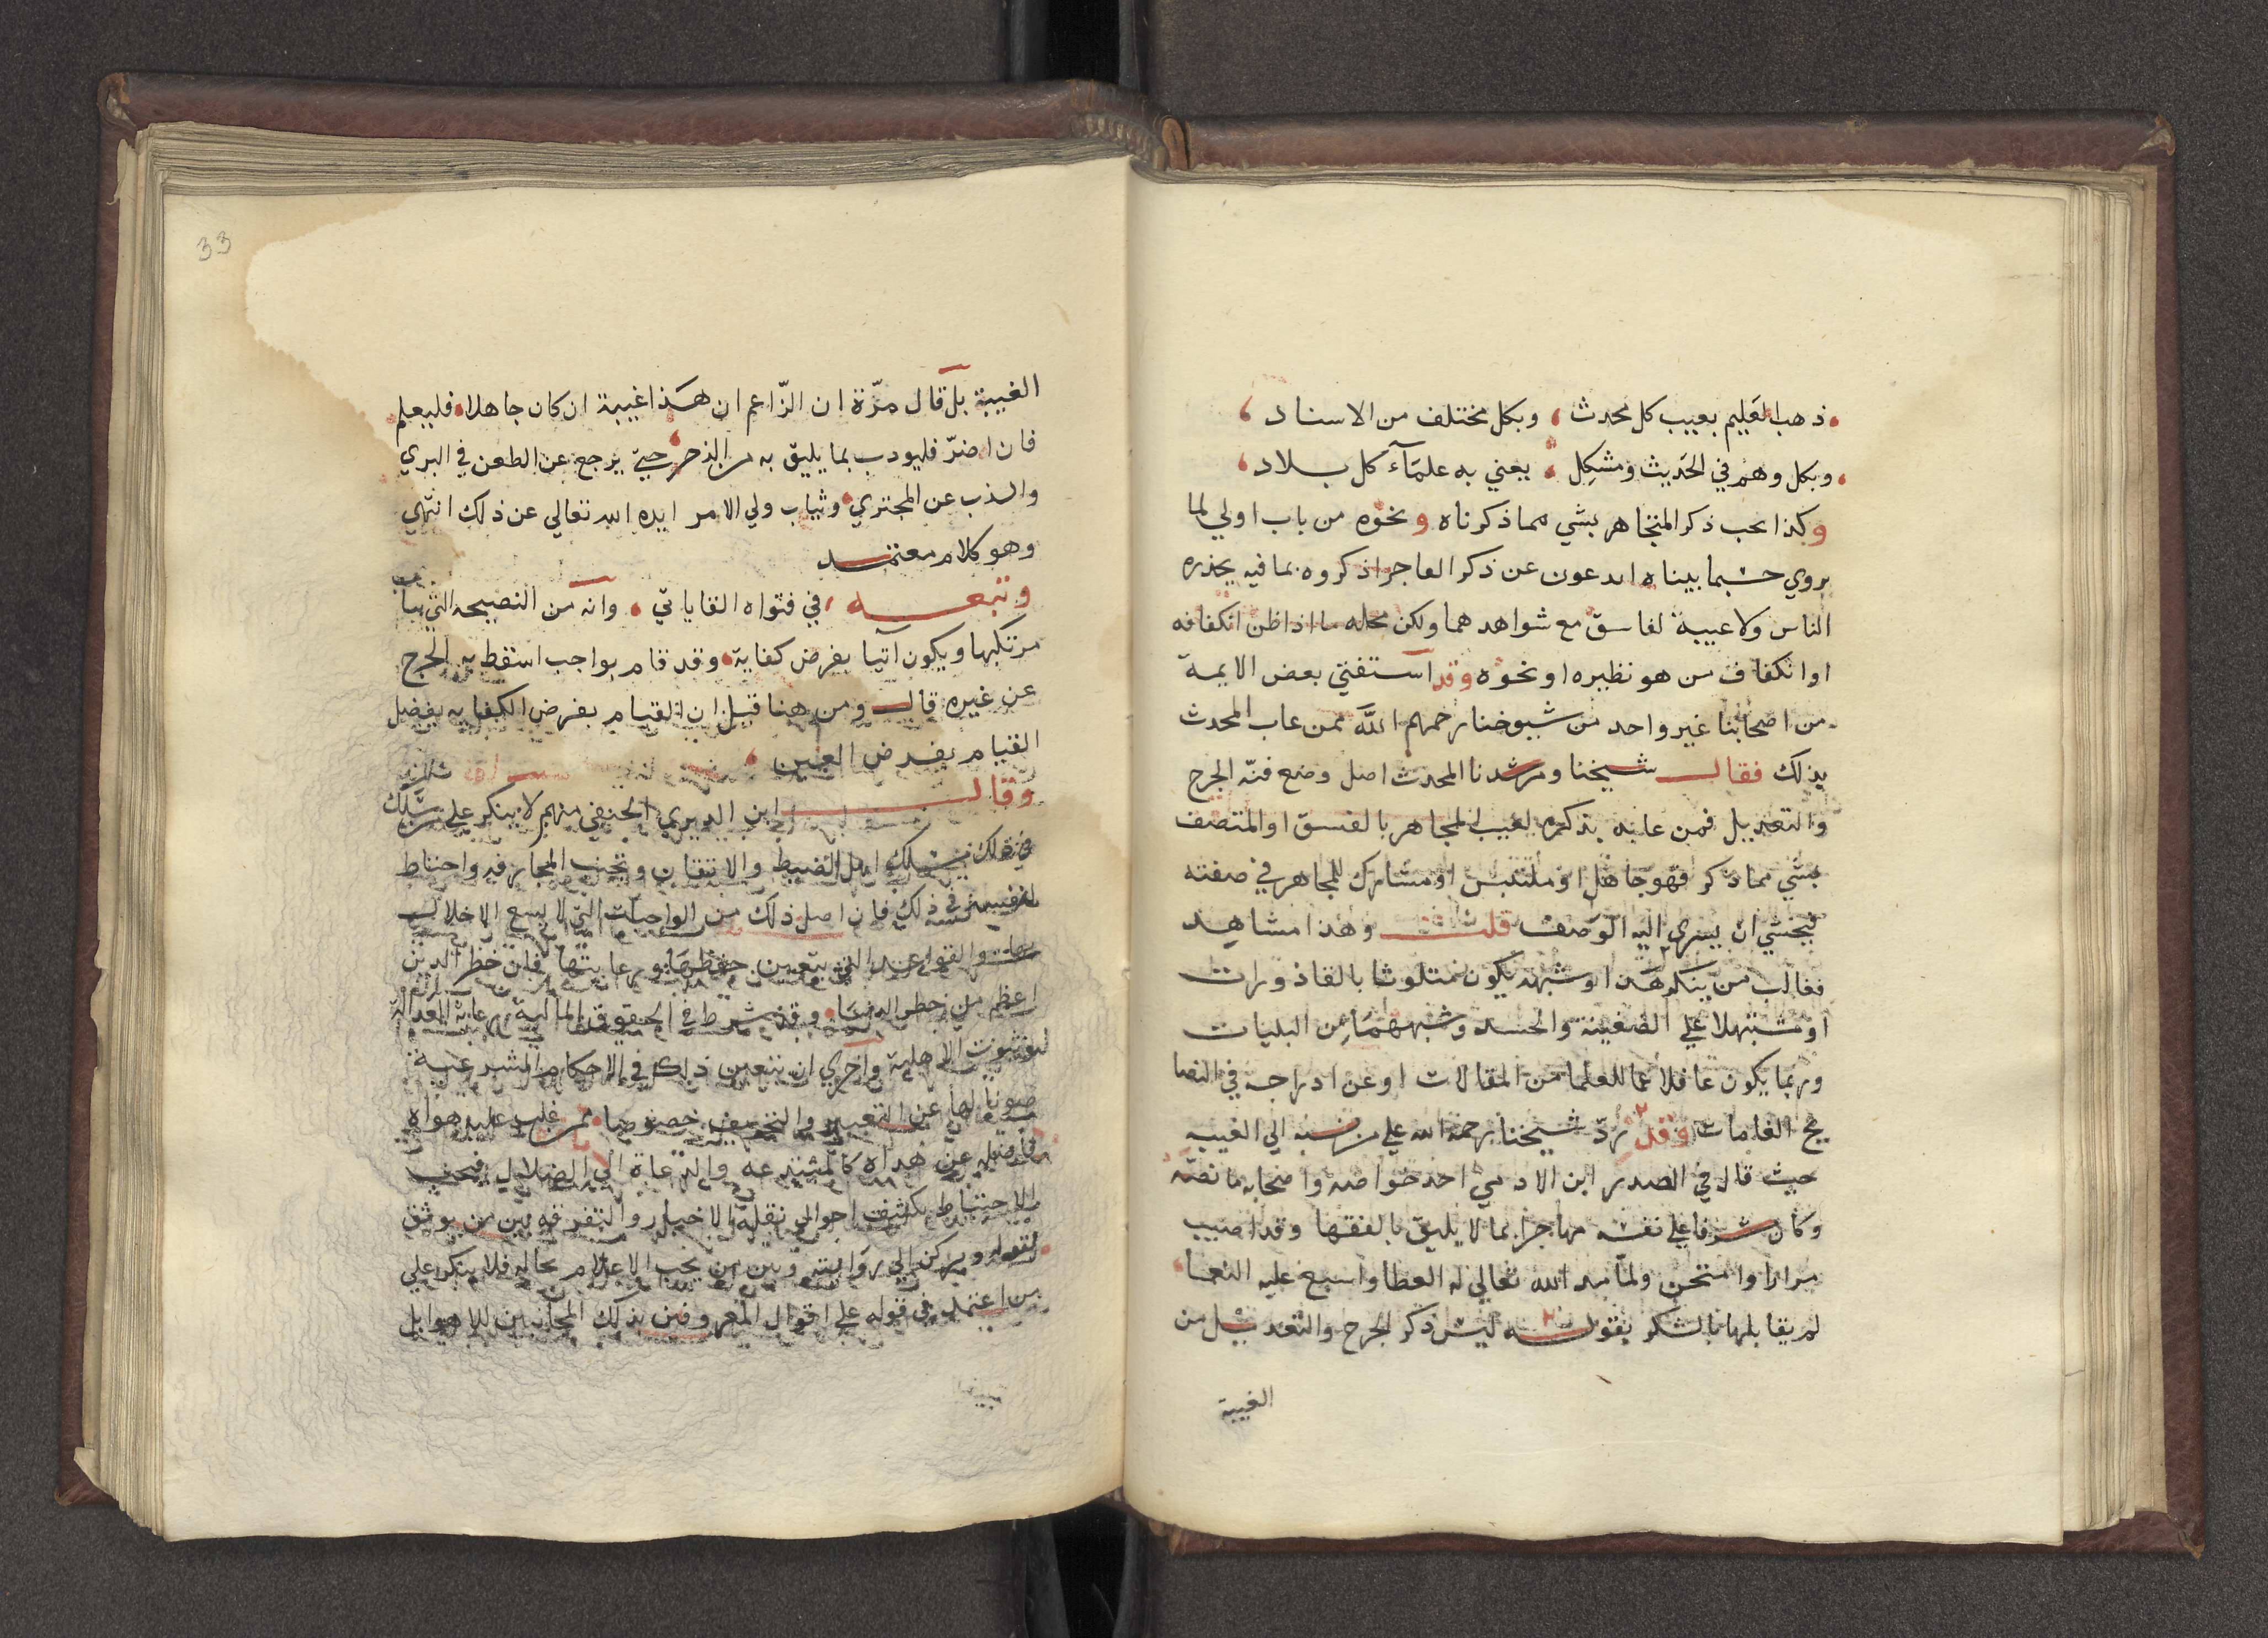 ذهب العليم بعيب كل محدث ، وبكل مختلف من الاسناد ،
وبكل وهم في الحديث ومشكل ، يعني به علمآء كل بلاد ،
وكذا يحب ذكر المتجاهر بشي مما ذكرناه ونحوه من باب اولي لما
يروي حسبما بيناه اتدعون عن ذكر الفاجر اذكروه بما فيه يحذره
الناس ولا غيبة لفاسق مع شواهدهما ولكن محله ما اذا ظن انكفافه
او انكفاف من هو نظيره او نحوه وقد استفتي بعض الايمة
من اصحابنا غير واحد من شيوخنا رحمهم الله ممن عاب المحدث
بذلك فقال شيخنا ومرشدنا المحدث اصل وضع فنه الجرح
والتعديل فمن عابه بذكره لعيب المجاهر بالفسق او المتصف
بشي مما ذكر فهو جاهل او ملتبس او مشارك للمجاهر في صفته
فيخشي ان يسري اليه الوصف قلت وهذا مشاهد
فغالب من ينكر هذا وشبهه يكون متلوثا بالقاذورات
او مشتملا علي الضغينة والحسد وشبههما من البليات
وربما يكون غافلا عما للعلما من المقالات او عن ادراجه في النصا
يح العامات وقد ردّ شيخنا رحمه الله علي من نسبه الي الغيبه
حيث قال في الصدر ابن الادمي احد خواصه واصحابه ما نصه
وكان مسرفا علي نفسه مجاهرا بما لا يليق بالفقها وقد اصيب
مرارا وامتحن ولما مد الله تعالي له العطا واسبغ عليه النعما
لم يقابلها بالشكر بقوله ليس ذكر الجرح والتعديل من
الغيبة
33
الغيبة بل قال مرّة ان الزّاعم ان هذا غيبة ان كان جاهلا فليعلم
فان اصرّ فليودب بما يليق به من الزجر حتي يرجع عن الطعن في البري
والذب عن المجتري ويثاب ولي الامر ايده الله تعالي عن ذلك انتهي
وهو كلام معتمد
وتبعه في فتواه القاياتي ، وانه من النصيحه التي يثاب
مرتكبها ويكون آتيا بفرض كفاية وقد قام بواجب اسقط به الحرج
عن غيره قال ومن هنا قيل ان القيام بفرض الكفايه يفضل
القيام بفرض العين ،
وقال ابن الديري الحنفي منهم لا ينكر علي من سلك
في ذلك مسلك اهل الضبط والاتقان وتجنب المجازفه واحتاط
لنفسه في ذلك فان اصل ذلك من الواجبات التي لا يسع الاخلال
بها والقواعد التي يتعين حفظها ورعايتها فان خطر الدين
اعظم من خطر الدنيا وقد شرط في الحقوق المالية رعاية العدالة
لثبوت الاهلية واحري ان يتعين ذلك في الاحكام الشرعية
صونا لها عن التغيير والتحريف خصوصا ممن غلب عليه هواه
فاضله عن هداه كالمبتدعة والدعاة الي الضلال فيجب
الاحتياط بكشف احوال نقلة الاخبار والتفرقه بين من يوثق
بقوله ويركن الي روايته وبين من يجب الاعلام بحاله فلا ينكر علي
من اعتمد في قوله علي اقوال المعروفين بذلك المجانبين للاهوا بل